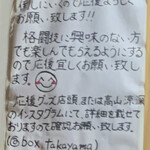 お願い致します!!
格闘技に興味のない方
でも楽しんでもらえるようにする
ので応援宜しくお願い致し
ます。
応援グッズ店頭または高山原
のインスタグラムにて、詳細を載せて
おりますので確認お願い致します。
box_takayama)